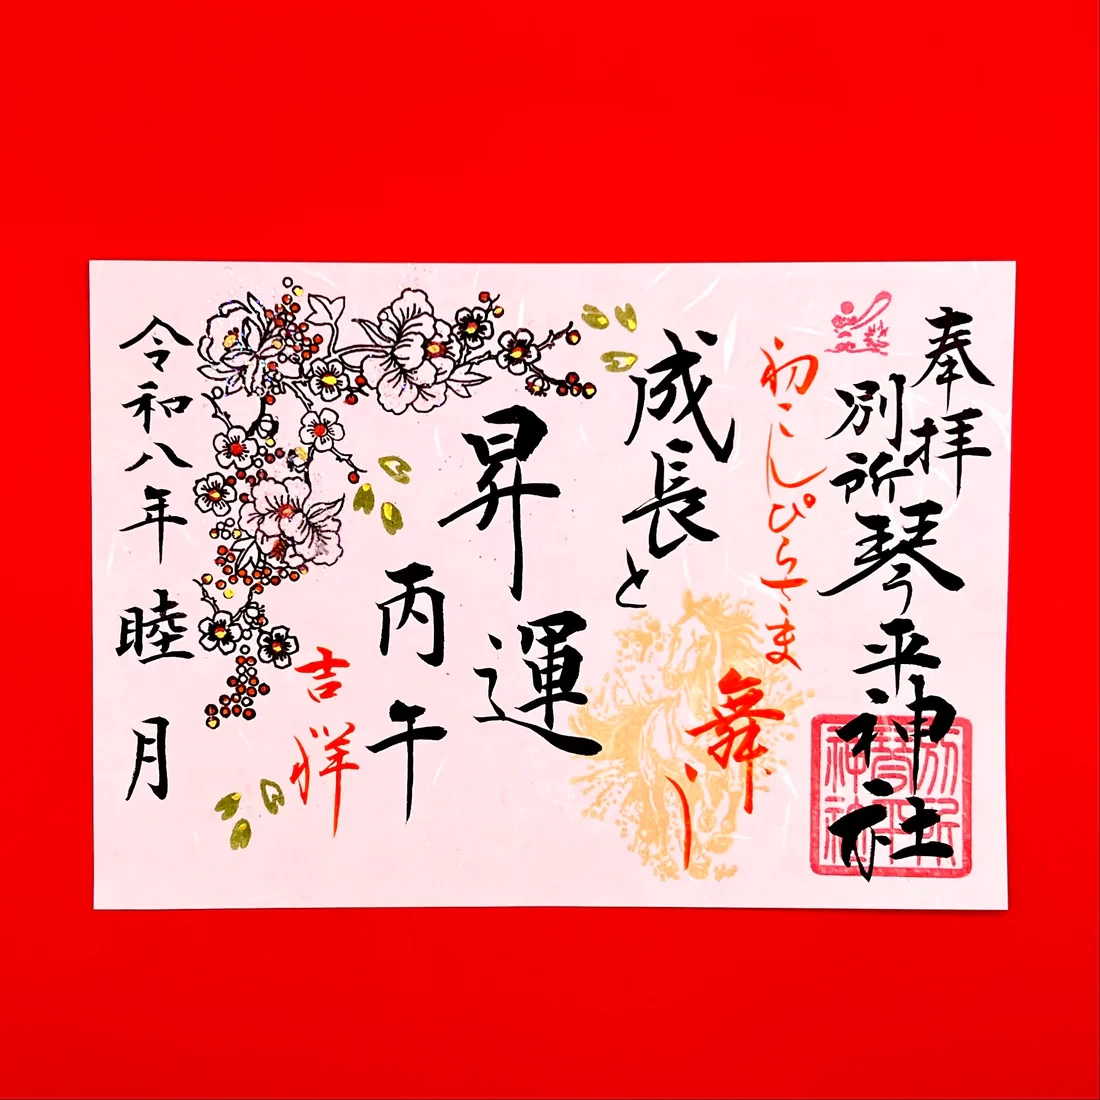 奉拝
別所琴平神社
初こんぴらさま
舞
成長と
昇運
丙午
吉祥
令和八年睦月
別所
琴平
神社